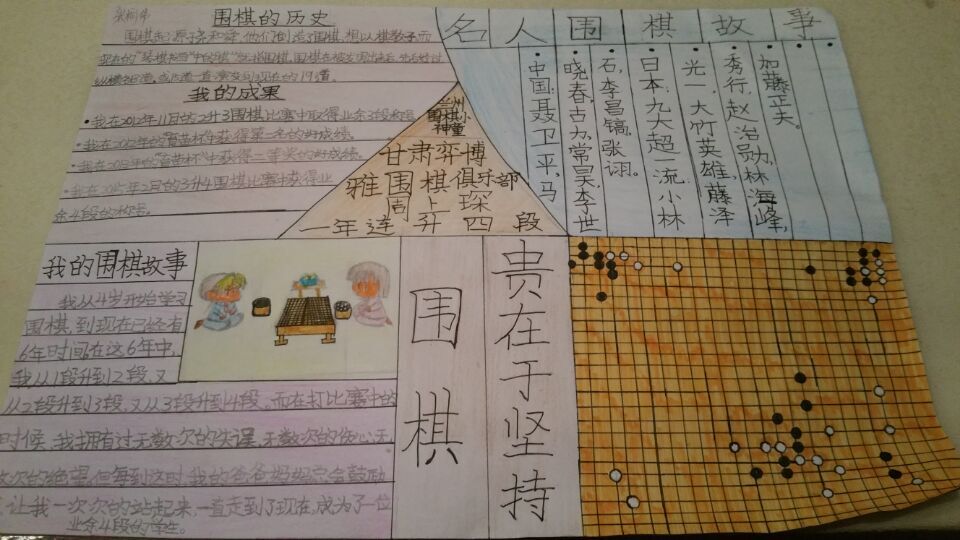 围棋的历史
围棋起源于尧和舜,他们创造了围棋,想以棋教子而
我的成果
•我在2012年11月的2升3围棋比赛中取得业余3段称号
•我在2012年的"育苗杯"中获得第一名的好成绩。
•我在2013年的"育苗杯"中获得二等奖的好成绩。
•我在2015年2月的3升4围棋比赛中获得业
余4段的称号。
兰州
围棋小
神童
甘肃弈博
雅围棋俱乐部
周上琛
一年连升四段
名人围棋故事
•中国:聂卫平,马
晓春,古力,常昊,李世
石,李昌镐,张诩。
•日本:九大超一流小林
光一,大竹英雄,藤泽
秀行,赵治勋,林海峰,
加藤正夫。
我的围棋故事
我从4岁开始学习
围棋,到现在已经有
6年时间在这6年中,
我从1段升到2段,又
从2段升到3段,又从3段升到4段。而在打比赛中的
时候,我拥有过无数次的失误,无数次的伤心,无
数次的绝望,但每到这时,我的爸爸妈妈总会鼓励
让我一次次的站起来,一直走到了现在,成为了一位
业余4段的学生。
围棋
贵在于坚持